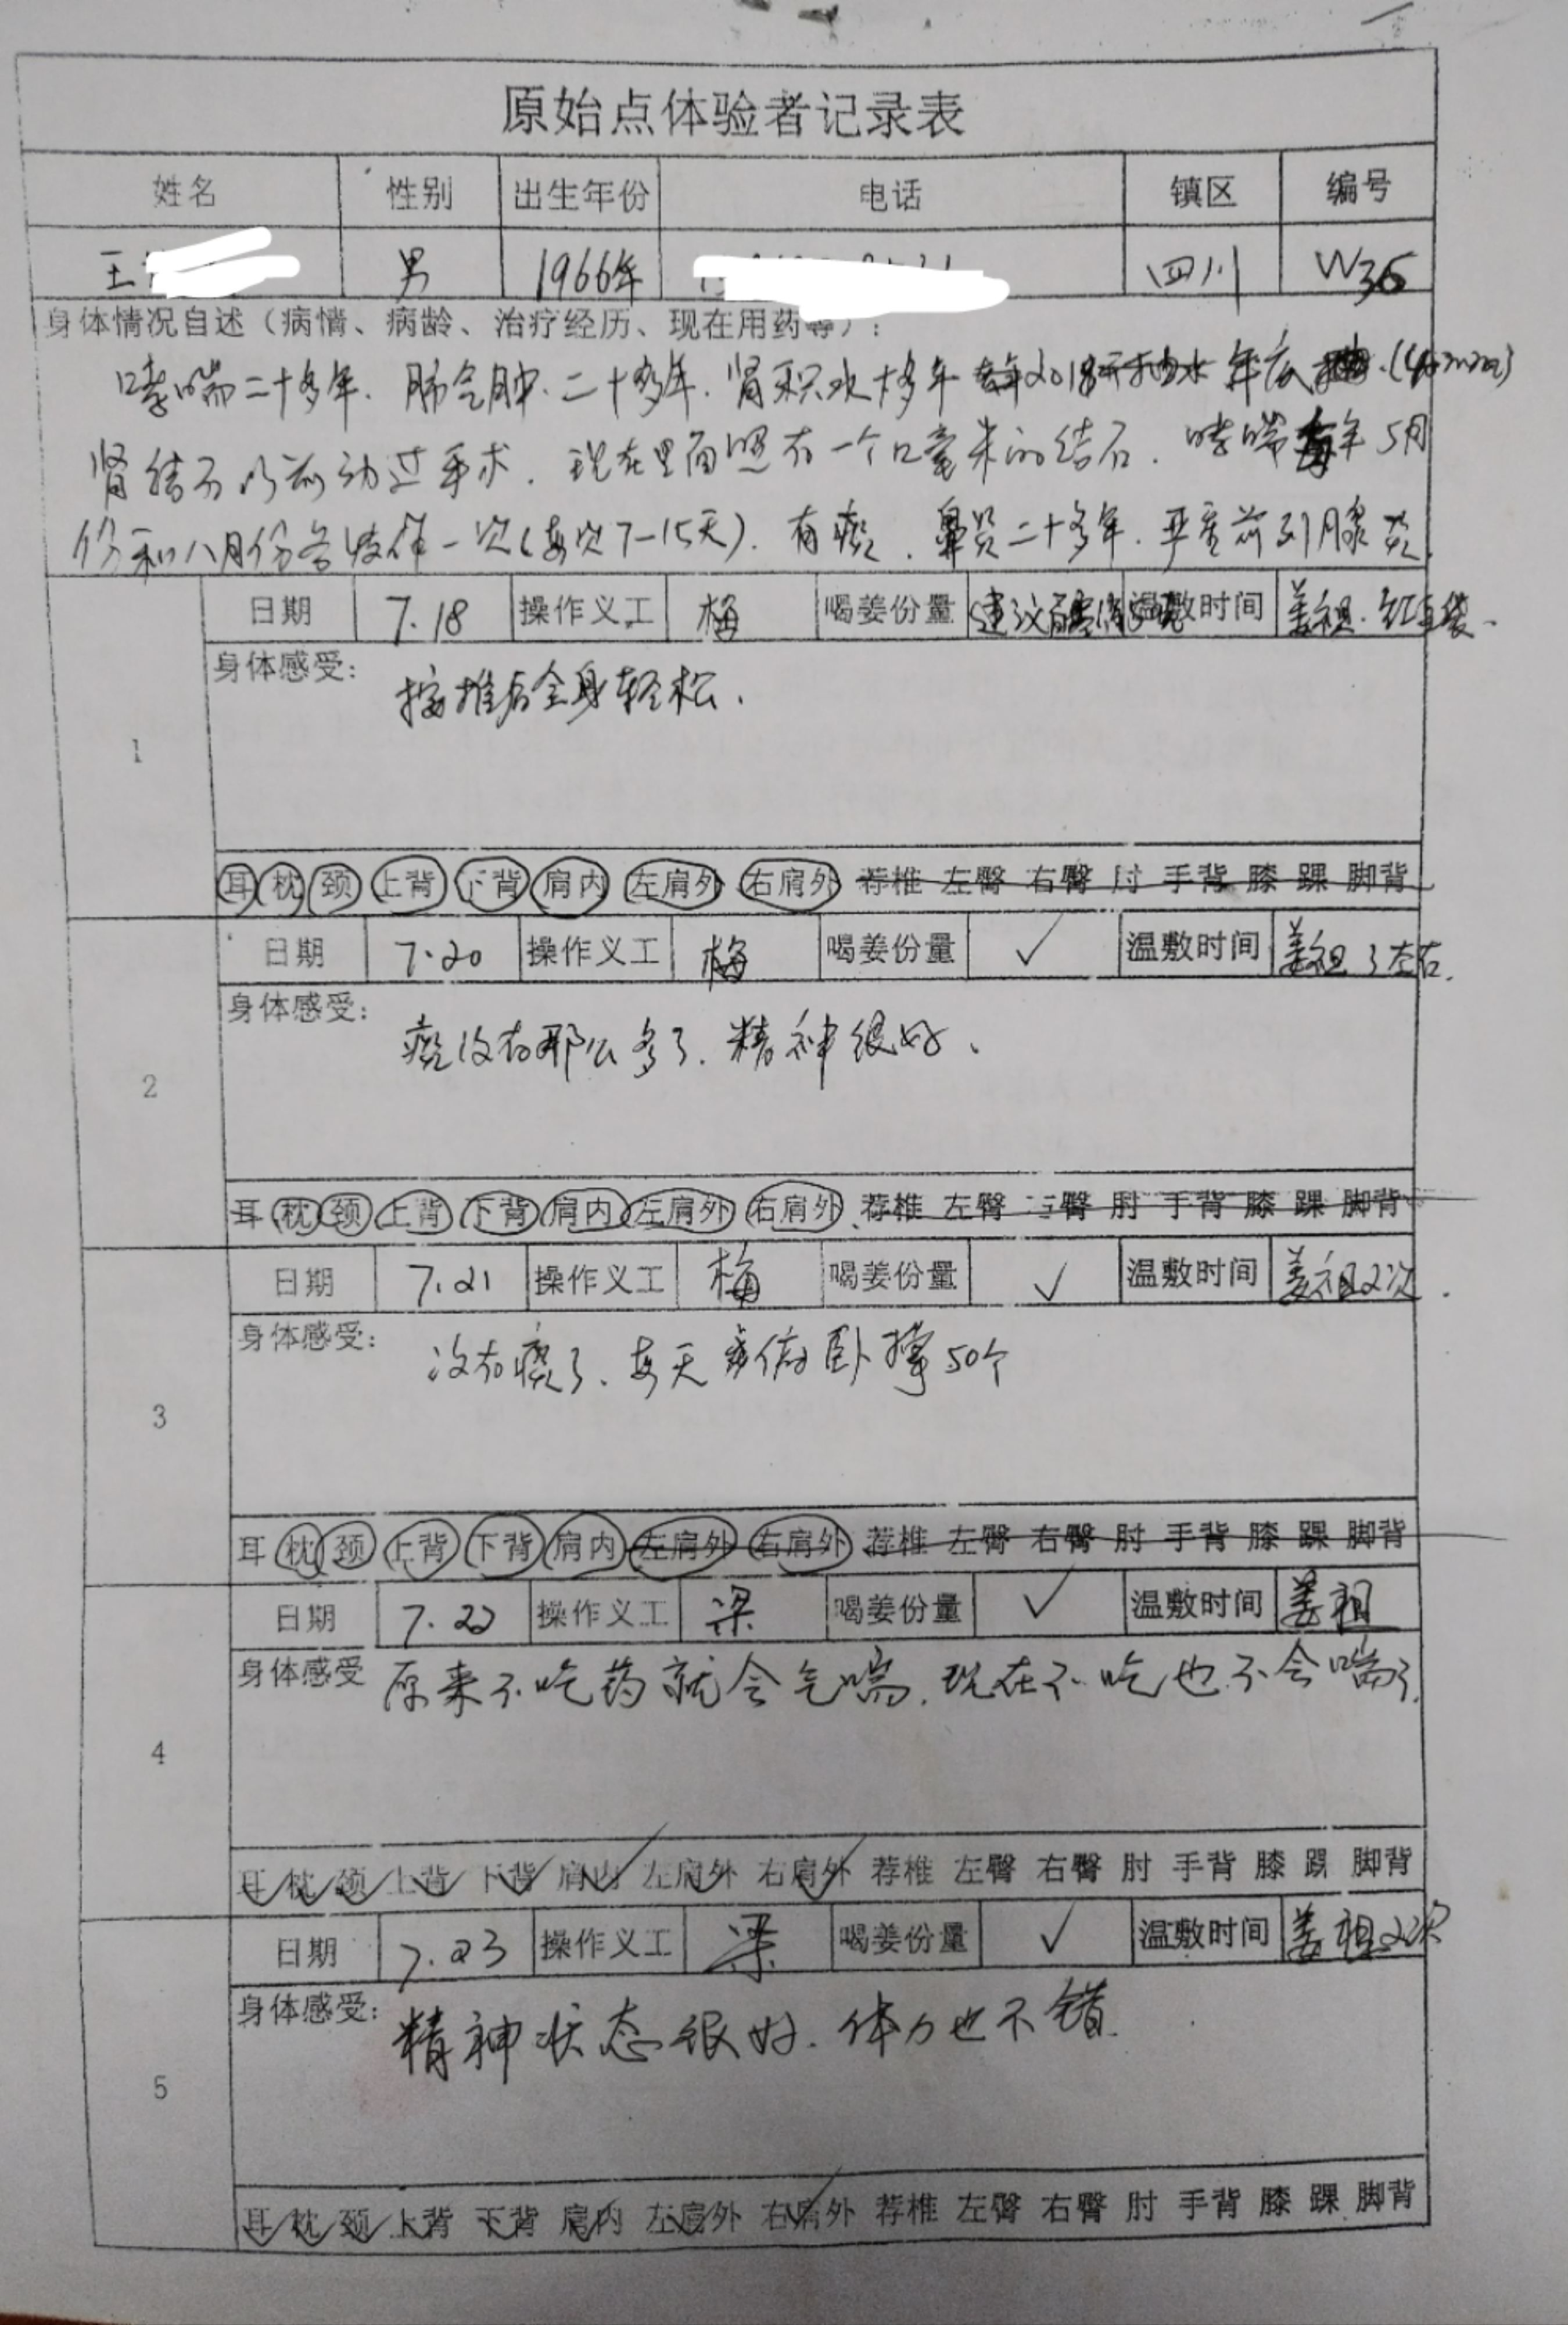 原始点体验者记录表
姓名 性别 出生年份 电话 镇区 编号
王 男 1966年 四川 W36
身体情况自述（病情、病龄、治疗经历、现在用药等）：
哮喘二十多年．肺气肿．二十多年．肾积水十多年 年底
肾结石以前动过手术．现在里面照有一个 毫米的结石．哮喘每年5月
份和八月份各发作一次(每次7-15天)．有痰．鼻炎二十多年．严重前列腺炎．
1
日期 7.18 操作义工 梅 喝姜份量 建议 温敷时间 姜祖．红豆袋．
身体感受：按推后全身轻松．
耳 枕 颈 上背 下背 肩内 左肩外 右肩外 荐椎 左臀 右臀 肘 手背 膝 踝 脚背
2
日期 7.20 操作义工 梅 喝姜份量 ✓ 温敷时间 姜祖 3左右．
身体感受：痰没有那么多了．精神很好．
耳 枕 颈 上背 下背 肩内 左肩外 右肩外 荐椎 左臀 右臀 肘 手背 膝 踝 脚背
3
日期 7.21 操作义工 梅 喝姜份量 ✓ 温敷时间 姜祖2次．
身体感受：没有痰了．每天 俯卧撑50个
耳 枕 颈 上背 下背 肩内 左肩外 右肩外 荐椎 左臀 右臀 肘 手背 膝 踝 脚背
4
日期 7.22 操作义工 梁 喝姜份量 ✓ 温敷时间 姜祖
身体感受 原来不吃药就会气喘．现在不吃也不会喘了．
耳 枕 颈 上背 下背 肩内 左肩外 右肩外 荐椎 左臀 右臀 肘 手背 膝 踝 脚背
5
日期 7.23 操作义工 梁 喝姜份量 ✓ 温敷时间 姜祖2次
身体感受：精神状态很好．体力也不错．
耳 枕 颈 上背 下背 肩内 左肩外 右肩外 荐椎 左臀 右臀 肘 手背 膝 踝 脚背